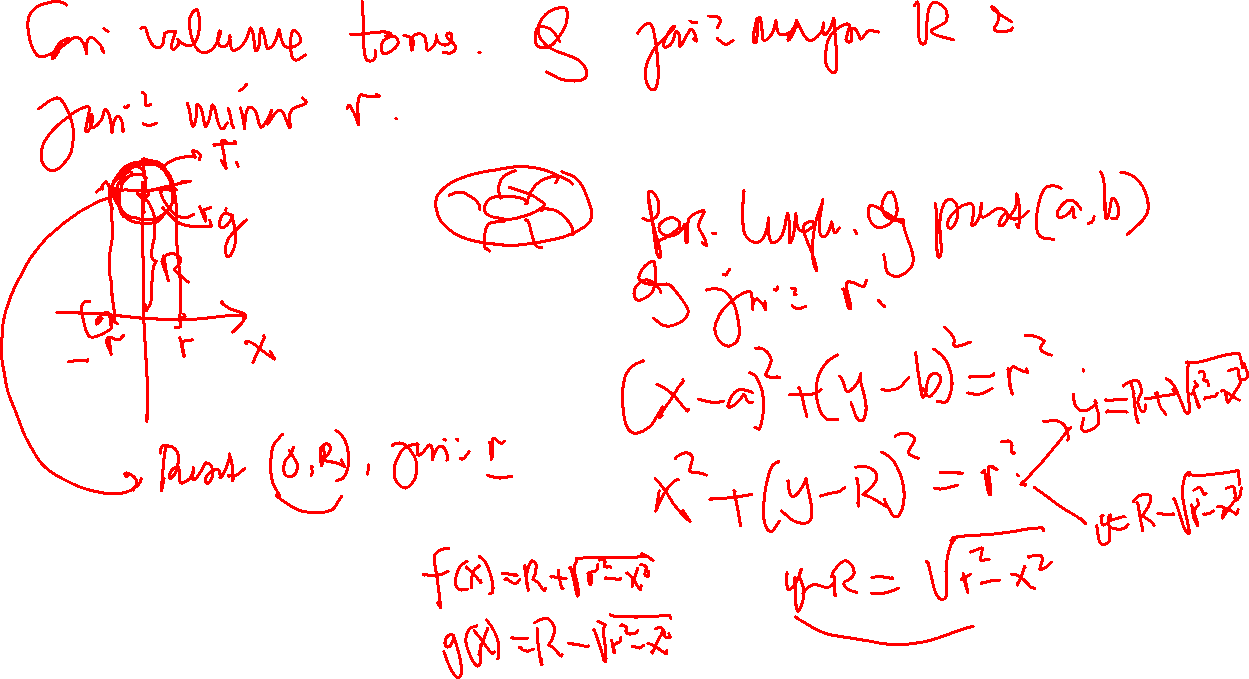 Cari volume torus. dg jari² mayor R &
jari² minor r.
f
g
R
-r r x
Pusat (0,R), jari² r
pers. lingk. dg pusat (a,b)
dg jari² r.
(x-a)²+(y-b)²=r²
x²+(y-R)²=r²
y=R+√r²-x²
y=R-√r²-x²
y-R=√r²-x²
f(x)=R+√r²-x²
g(x)=R-√r²-x²